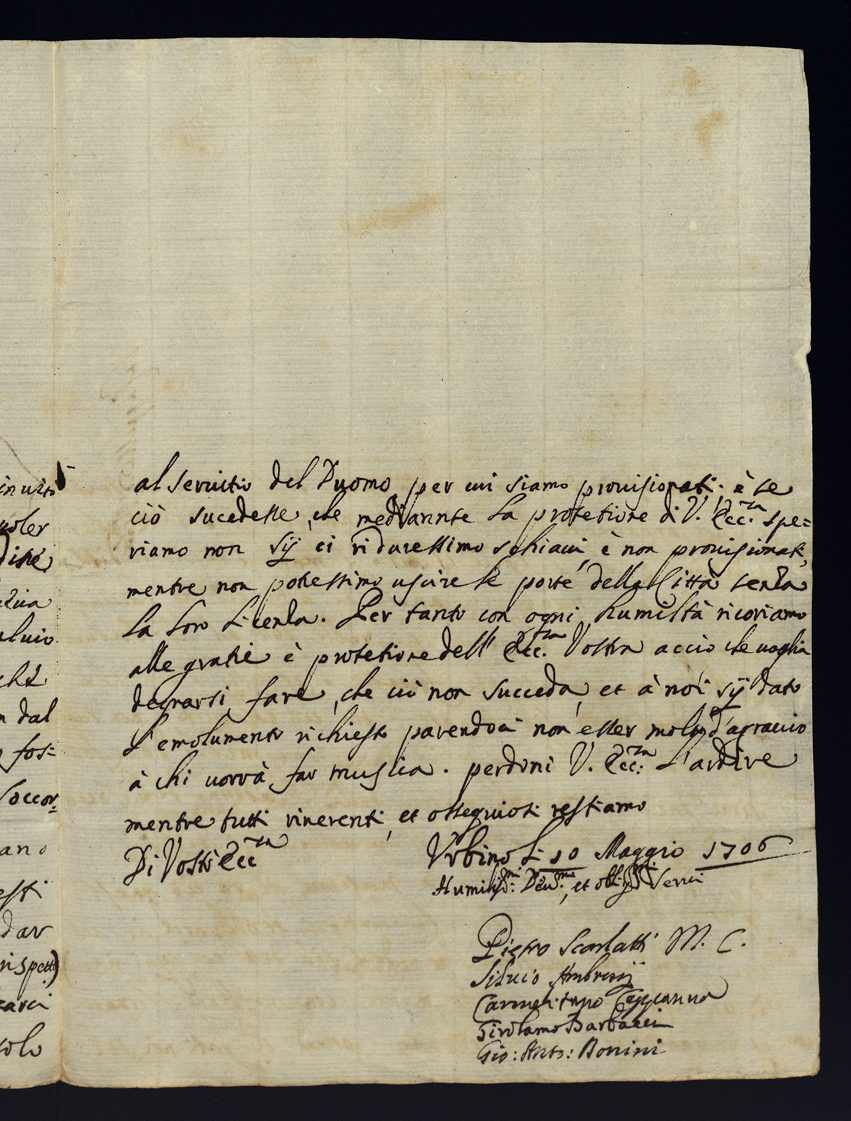 in uitio
uoler
Dire
uluio
che
n dal
fos=
soccor
ano
esti
dar
rispett)
carci
solo
al seruitio del Duomo per cui siamo prouisionati. è se
ciò sucedesse, che mediannte la protetione di V. Ecc.za spe=
riamo non sij ci riduressimo schiaui, è non prouisionati,
mentre non potessimo uscire le porte della Città senza
la loro licenza. Per tanto con ogni humiltà ricoriamo
alle gratie è protetione dell' Ecc.za Vostra acciò che uoglia
degnarsi fare, che ciò non succeda, et à noi sij dato
l'emolumento richiesto parendoci non esser molto d'agrauio
à chi uorrà far musica. perdoni V. Ecc.za l'ardire
mentre tutti riuerenti, et ossequiosi restiamo
Di Vostr Ecc.za
Vrbino li 10 Maggio 1706
Humiliss.mi Deu.mi, et obblig.mi Serui
Pietro Scarlatti M. C.
Siluio Ambrosij
Girolamo Barbacci
Gio: Bonini